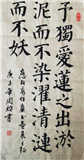 予獨愛蓮之出淤
泥而不染濯清漣
而不妖